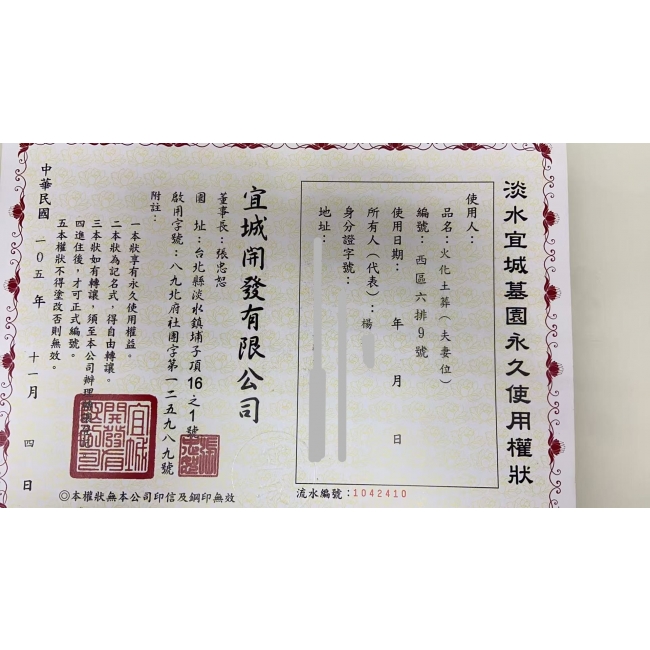 淡水宜城墓園永久使用權狀
使用人：
品名：火化土葬（夫妻位）
編號：西區六排9號
使用日期：　年　月　日
所有人（代表）：楊
身分證字號：
地址：
流水編號：1042410
宜城開發有限公司
董事長：張忠恕
園　址：台北縣淡水鎮埔子頂16之1號
啟用字號：八九北府社團字第一二五九八九號
附註：
一本狀享有永久使用權益。
二本狀為記名式，得自由轉讓。
三本狀如有轉讓，須至本公司辦理
四進住後，才可正式編號。
五本權狀不得塗改否則無效。
中華民國　一〇五年　十一月　四日
◎本權狀無本公司印信及鋼印無效
宜城開發有限公司